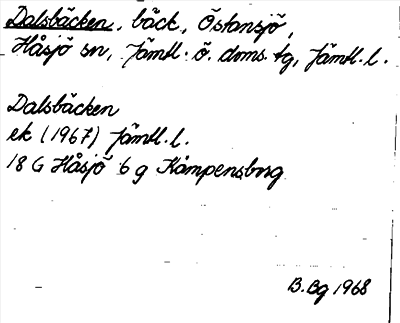 Dalsbäcken, bäck, Östansjö,
Håsjö sn, Jämtl. ö. doms. tg, Jämtl. l.
Dalsbäcken
ek (1967) Jämtl. l.
18 G Håsjö 6 g Kämpensborg
B. Bg 1968